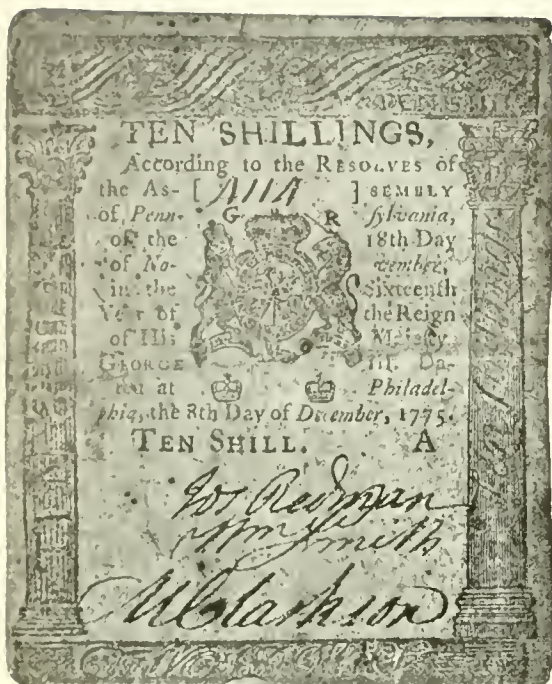 TEN SHILLINGS,
According to the RESOLVES of
the As- [ ] SEMBLY
of Penn- G R sylvania,
on the 18th Day
of No- vember,
in the Sixteenth
Year of the Reign
of His Majesty
GEORGE III. Da-
ted at Philadel-
phia, the 8th Day of December, 1775.
TEN SHILL. A
Jos Redman
Wm Smith
M Clarkson